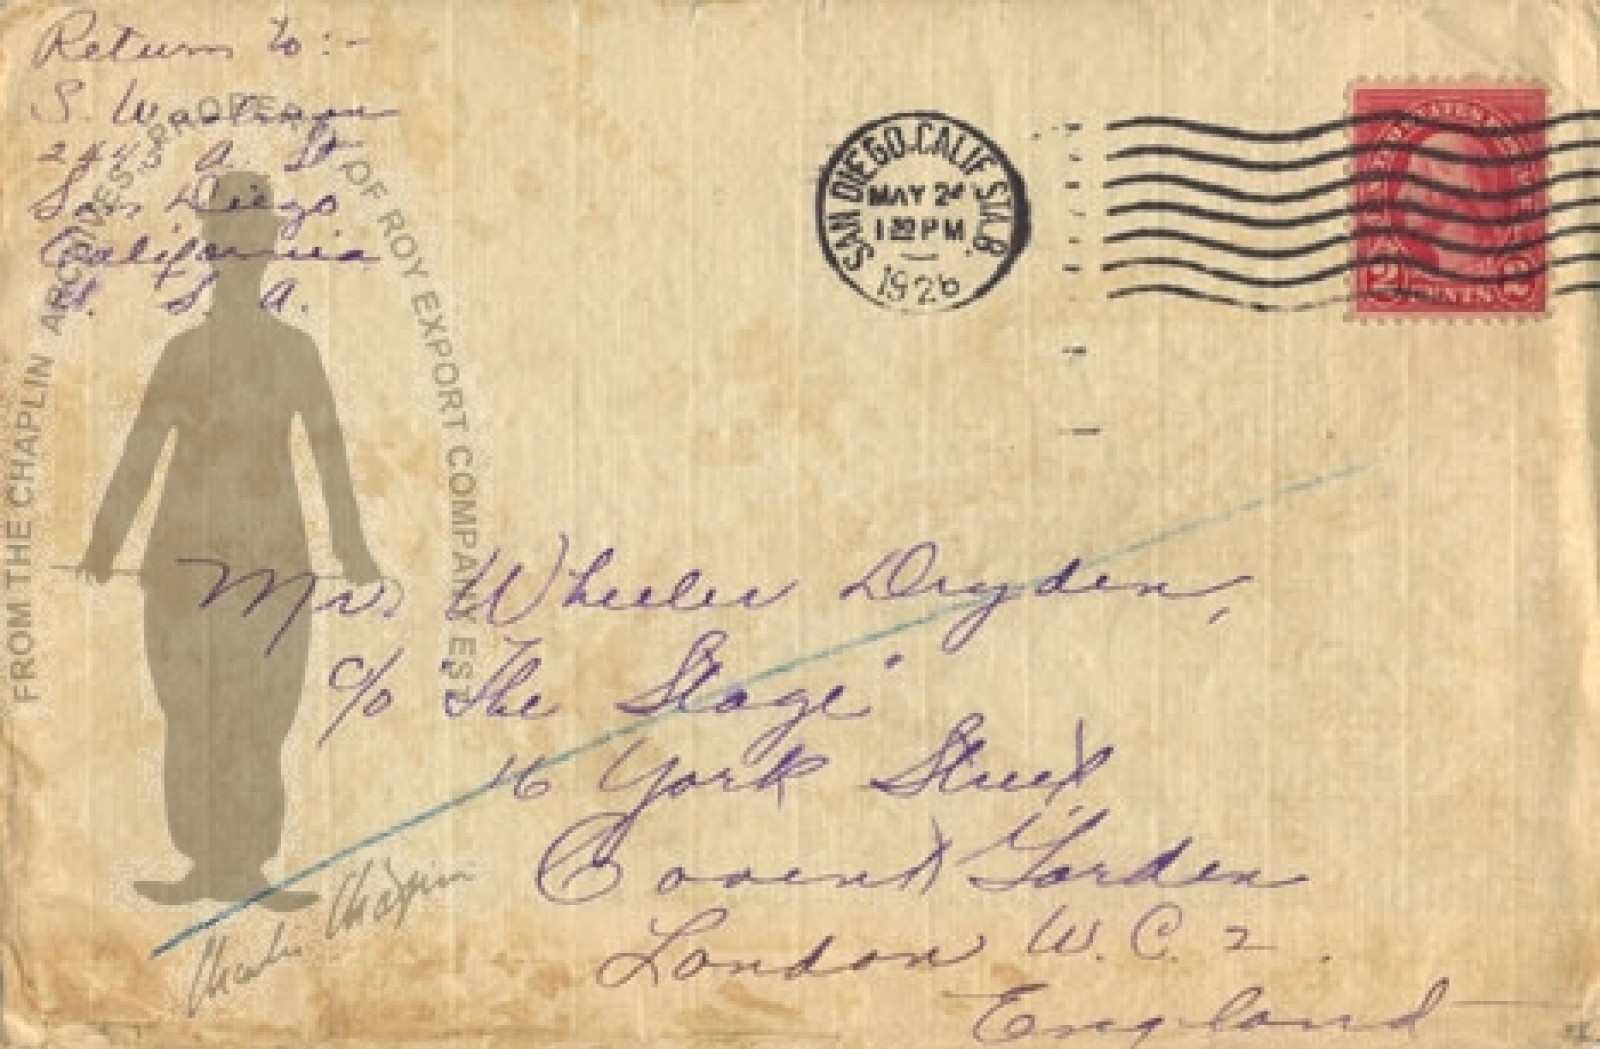 Return to:-
S.
A. St
San Diego
California
U. S. A.
SAN DIEGO, CALIF. STA. B.
MAY 2
1 PM
1926
UNITED STATES
2 CENTS 2
Mr. Wheeler Dryden,
c/o "The Stage"
16 York Street
Covent Garden
London W. C. 2.
England
FROM THE CHAPLIN ARCHIVES. PROPERTY OF ROY EXPORT COMPANY EST
Charlie Chaplin